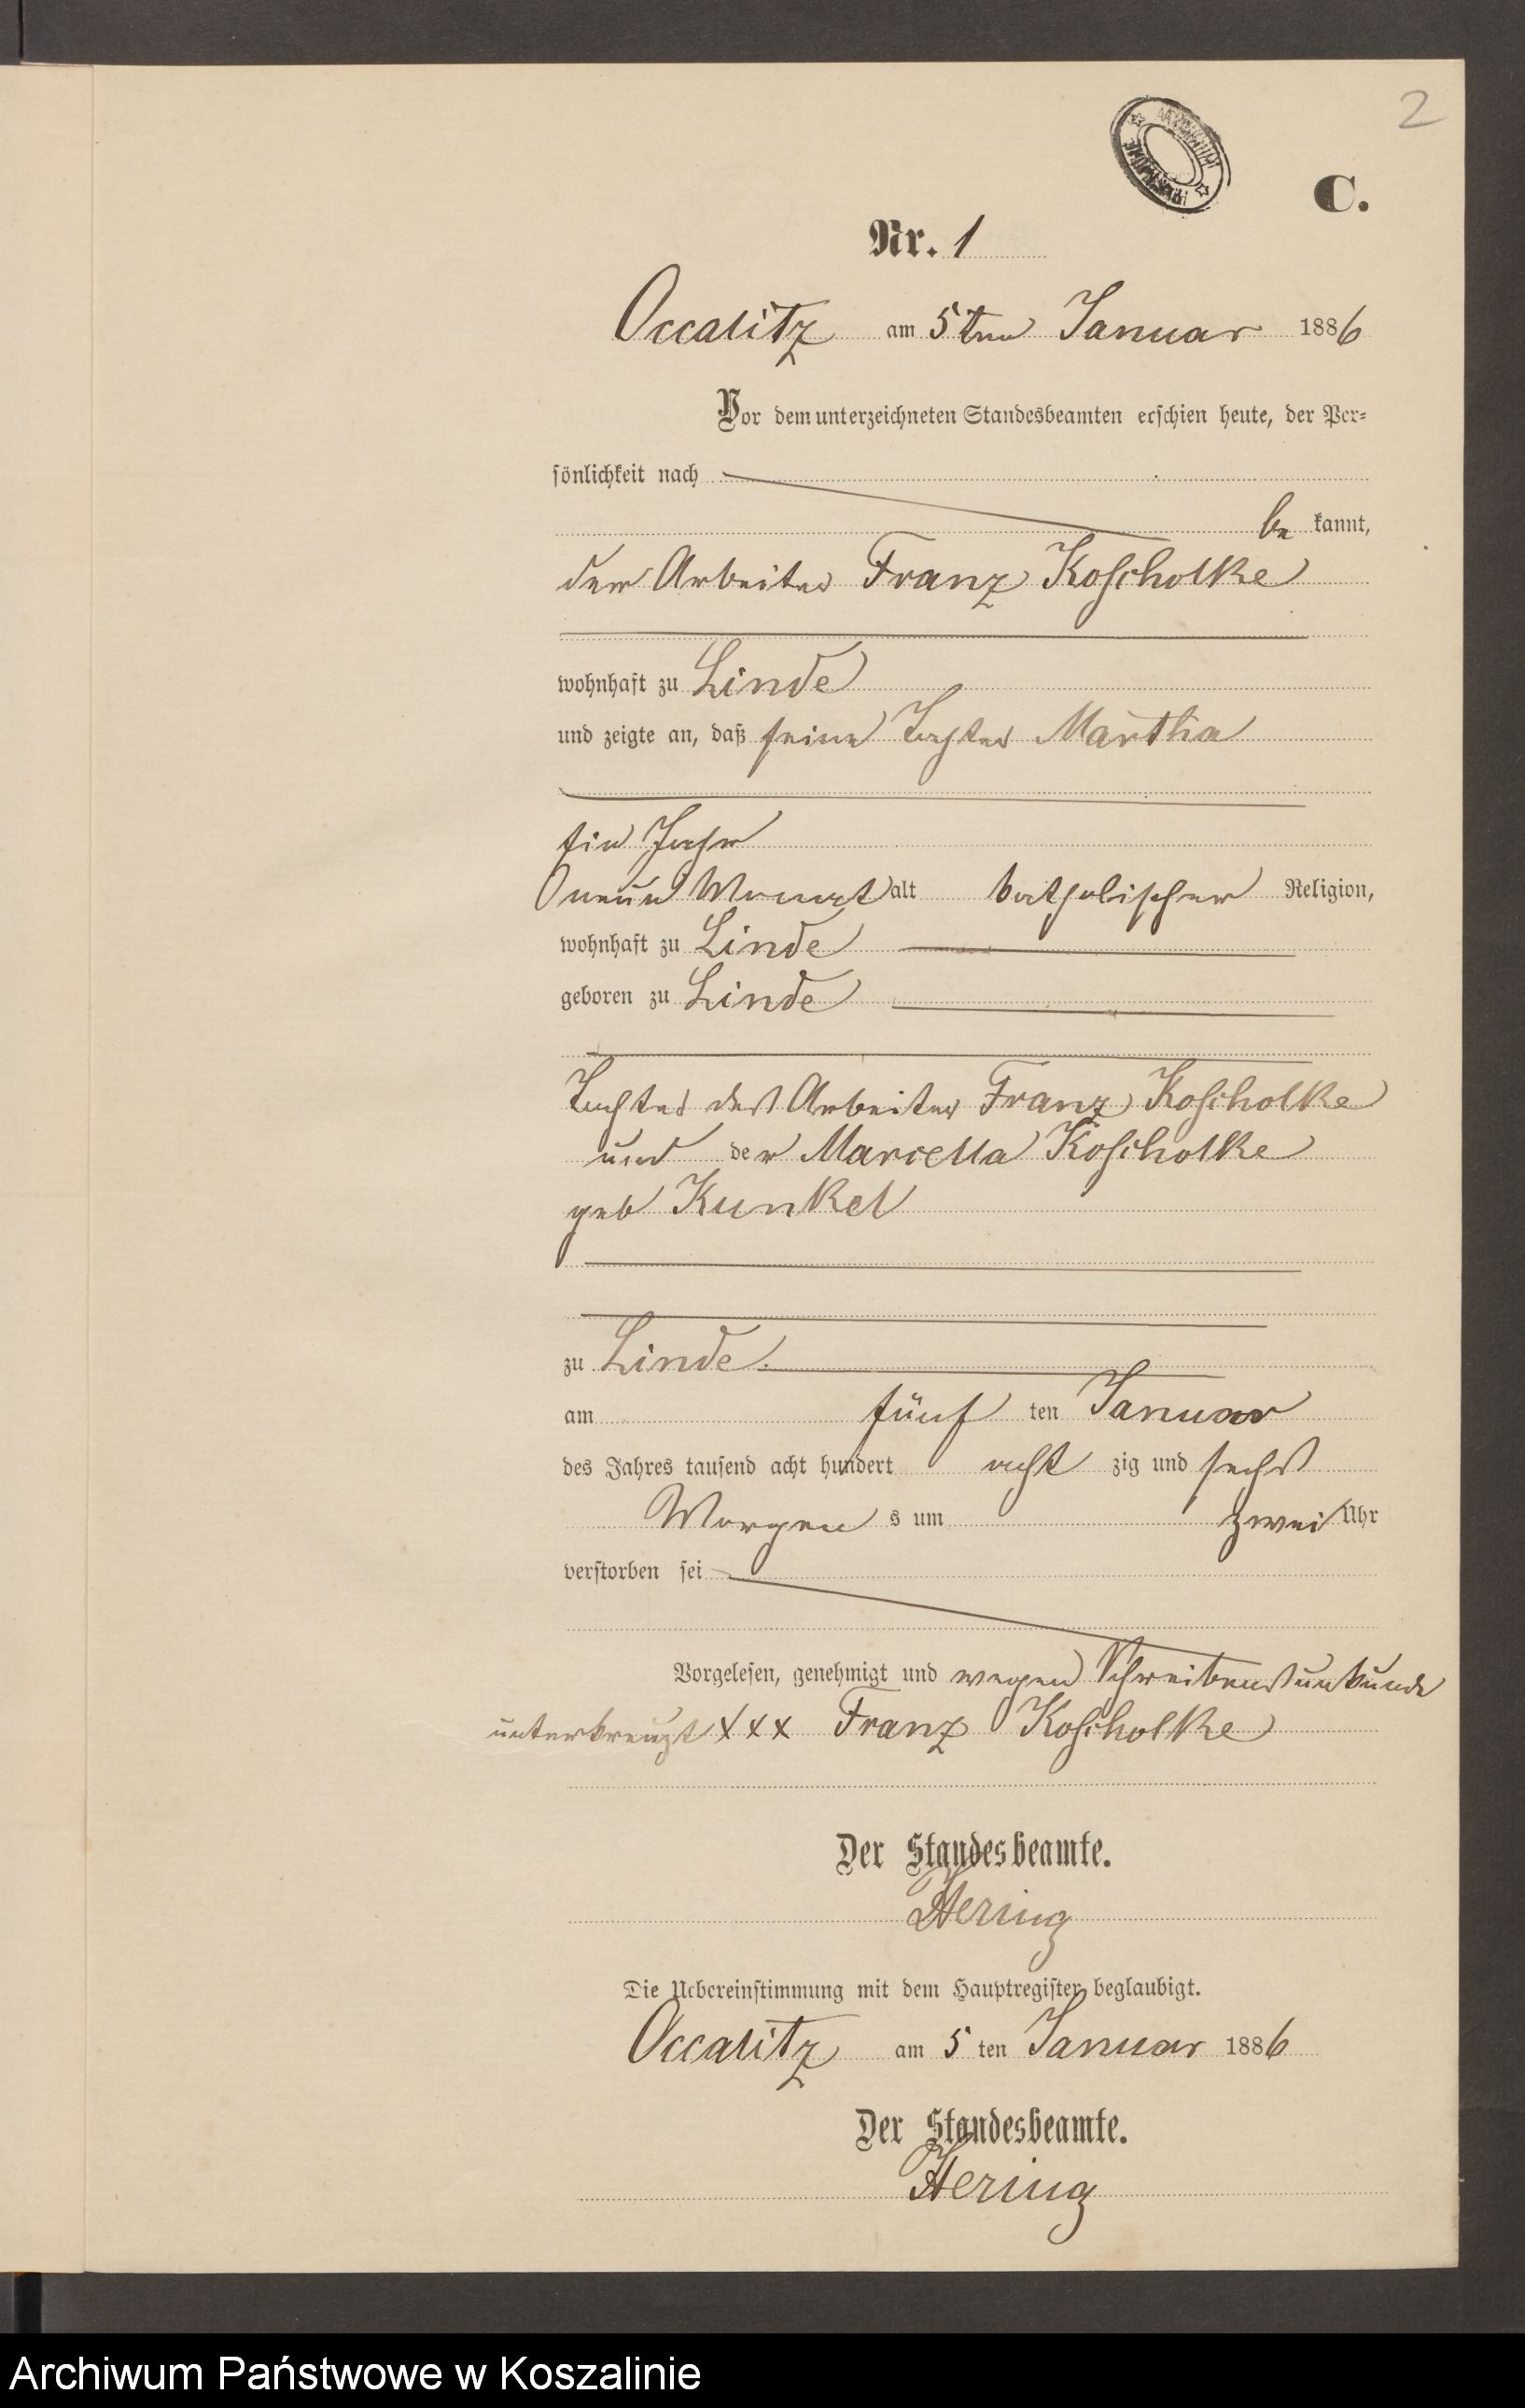 2
C.
Nr. 1
Occalitz am 5ten Januar 1886
Vor dem unterzeichneten Standesbeamten erschien heute, der Per=
sönlichkeit nach
be kannt,
der Arbeiter Franz Koscholke
wohnhaft zu Linde
und zeigte an, daß seine Tochter Martha
ein Jahr
neun Monat alt katholischer Religion,
wohnhaft zu Linde
geboren zu Linde
Tochter des Arbeiter Franz Koscholke
und der Marcella Koscholke
geb Kunkel
zu Linde.
am fünf ten Januar
des Jahres tausend acht hundert acht zig und sechs
Morgen s um zwei Uhr
verstorben sei
Vorgelesen, genehmigt und wegen Schreibensunkunde
unterkreuzt XXX Franz Koscholke
Der Standesbeamte.
Hering
Die Uebereinstimmung mit dem Hauptregister beglaubigt.
Occalitz am 5 ten Januar 1886
Der Standesbeamte.
Hering
Archiwum Państwowe w Koszalinie